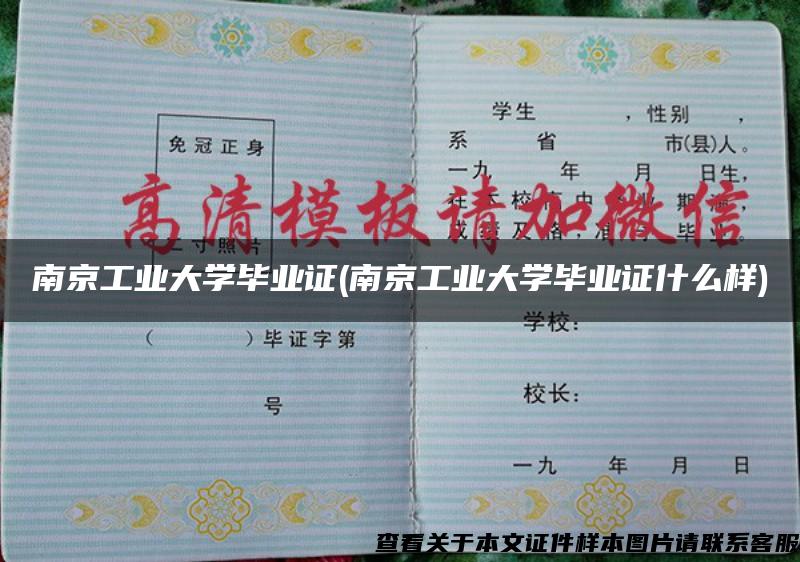 免冠正身
二寸照片
(          )毕证字第
号
学生          ，性别    ，
系      省          市(县)人。
一九      年    月    日生，
在    校高中        期满，
成绩及格，准予毕业。
学校：
校长：
一九    年    月    日
高清模板请加微信
南京工业大学毕业证(南京工业大学毕业证什么样)
查看关于本文证件样本图片请联系客服